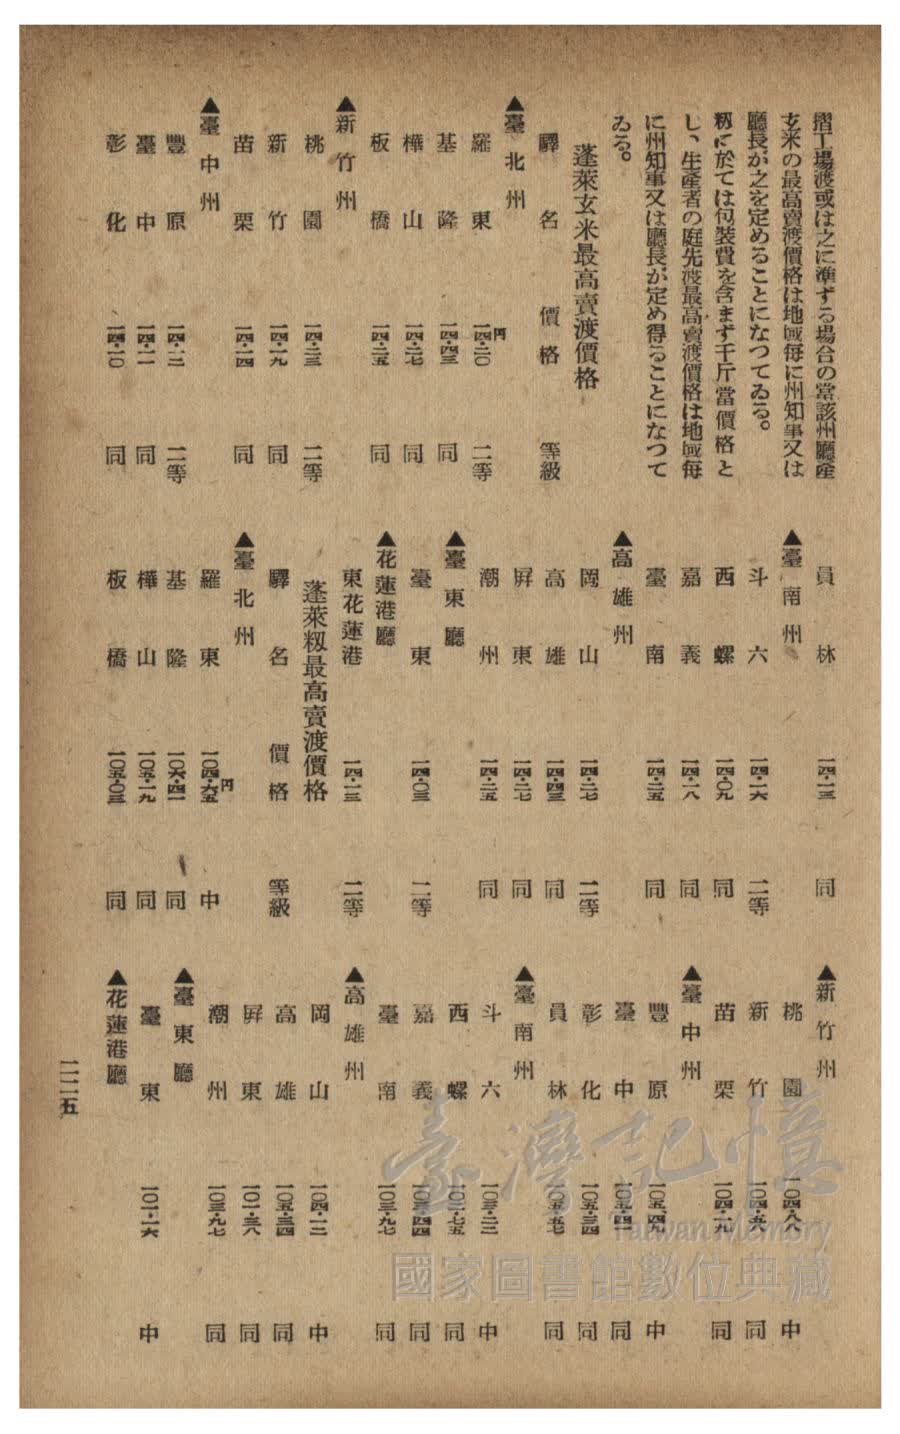 摺工場渡或は之に準ずる場合の當該州廳産
玄米の最高賣渡價格は地域毎に州知事又は
廳長が之を定めることになつてゐる。
籾に於ては包裝費を含まず千斤當價格と
し、生産者の庭先渡最高賣渡價格は地域毎
に州知事又は廳長が定め得ることになつて
ゐる。
蓬萊玄米最高賣渡價格
驛名 價格 等級
▲臺北州
羅東 一四・二〇円 二等
基隆 一四・四三 同
樺山 一四・二七 同
板橋 一四・二五 同
▲新竹州
桃園 一四・二三 二等
新竹 一四・一九 同
苗栗 一四・一四 同
▲臺中州
豐原 一四・一二 二等
臺中 一四・一一 同
彰化 一四・一〇 同
員林 一四・一三 同
▲臺南州
斗六 一四・一六 二等
西螺 一四・〇九 同
嘉義 一四・一八 同
臺南 一四・二五 同
▲高雄州
岡山 一四・二七 二等
高雄 一四・四三 同
屏東 一四・二七 同
潮州 一四・二五 同
▲臺東廳
臺東 一四・〇三 二等
▲花蓮港廳
東花蓮港 一四・一三 二等
蓬萊籾最高賣渡價格
驛名 價格 等級
▲臺北州
羅東 一〇四・六五円 中
基隆 一〇六・四一 同
樺山 一〇五・一九 同
板橋 一〇五・〇三 同
▲新竹州
桃園 一〇四・八八 中
新竹 一〇四・五六 同
苗栗 一〇四・一九 同
▲臺中州
豐原 一〇五・四九 中
臺中 一〇五・四一 同
彰化 一〇五・三四 同
員林 一〇五・五七 同
▲臺南州
斗六 一〇三・二二 中
西螺 一〇二・七五 同
嘉義 一〇三・四四 同
臺南 一〇三・九七 同
▲高雄州
岡山 一〇四・一二 中
高雄 一〇五・三四 同
屏東 一〇一・三八 同
潮州 一〇三・九七 同
▲臺東廳
臺東 一〇一・一六 中
▲花蓮港廳
一二五
臺灣記憶
Taiwan Memory
國家圖書館數位典藏